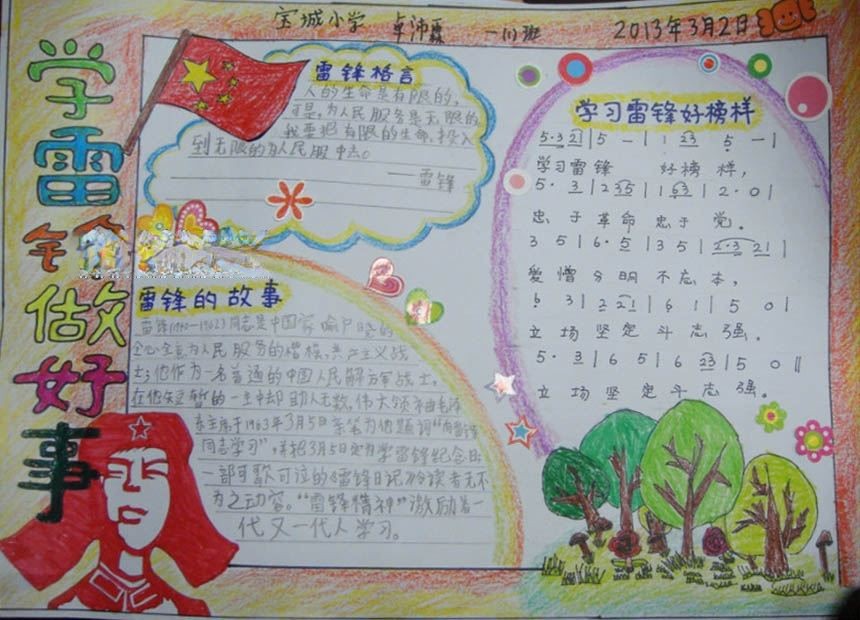 宝城小学 卓沛霖 一(1)班 2013年3月2日
学雷锋做好事
雷锋格言
人的生命是有限的,
可是,为人民服务是无限的
我要把有限的生命,投入
到无限的为人民服中去。
——雷锋
雷锋的故事
雷锋(1940-1962)同志是中国家喻户晓的
全心全意为人民服务的楷模,共产主义战
士;他作为一名普通的中国人民解放军战士,
在他短暂的一生中却助人无数。伟大领袖毛泽
东主席于1963年3月5日亲笔为他题词“向雷锋
同志学习”,并把3月5日定为学雷锋纪念日;
一部可歌可泣的《雷锋日记》令读者无不
为之动容。“雷锋精神”激励着一
代又一代人学习。
学习雷锋好榜样
5·3 21|5 - |1 23 5 - |
学习雷锋 好榜样,
5· 3|2 35|1 63|2·0|
忠于革命忠于党。
3 5|6·5|3 5|2·3 21|
爱憎分明不忘本,
6 3|2 21|6 1|5 0|
立场坚定斗志强。
5· 3|6 5|6 23|5 0‖
立场坚定斗志强。